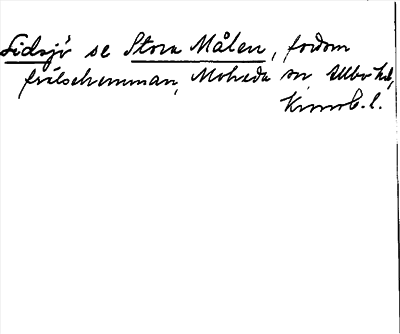 Lidsjö se Stora Målen, fordom
frälsehemman, Moheda sn Allbo hd,
Kronob. l.